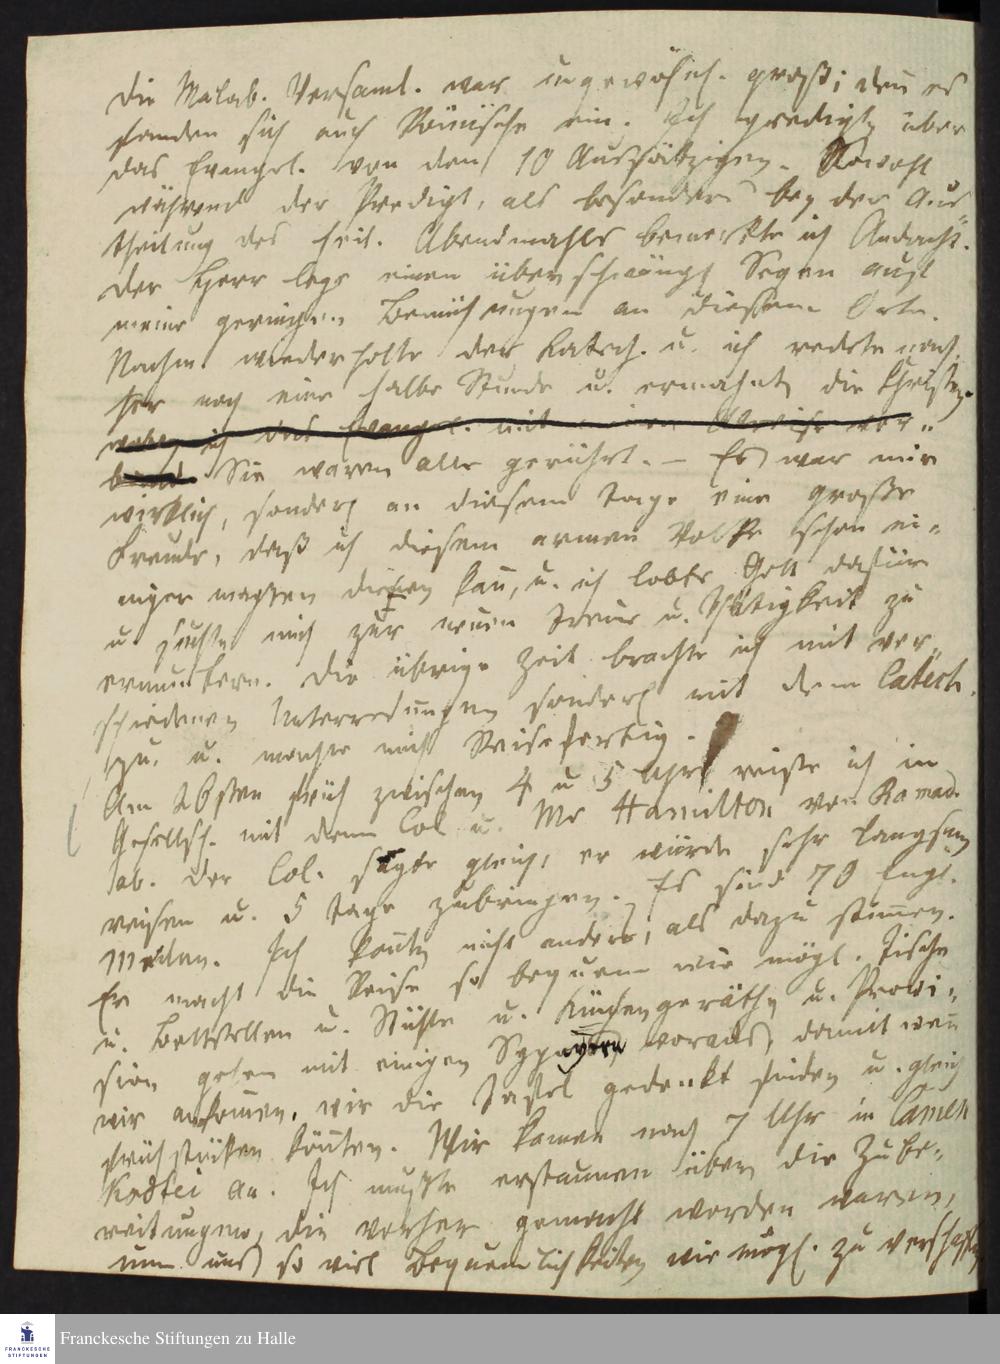 Die Malab. Versaml. war ungewöhnl. groß; den es
fanden sich auch Römische ein. Ich predigte über
das Evangel. von den 10 Aussätzigen. Sowohl
während der Predigt, als besonders bey der Aus-
theilung des heil. Abendmahls bemerkte ich Andacht.
Der Herr lege einen überschwängl Segen auf
meine geringen Bemühungen an diesem Orte.
Nachm. wiederholte der Katech. u. ich redete nach-
her noch eine halbe Stunde u. ermahnte die Christen,
ich das Evangel. mit ver-
Sie waren alle gerührt. — Es war mir
wirklich, sonderl an diesem Tage eine große
Freude, daß ich diesem armen Volke schon ei-
niger maßen dienen kan, u. ich lobte Gott dafür
u. suchte mich zur neuen Treue u. Thätigkeit zu
ermuntern. Die übrige Zeit brachte ich mit ver-
schiedenen Unterredungen sonderl mit dem Catech.
zu, u. machte mich Reisefertig.
Am 26sten früh zwischen 4 u 5 Uhr reiste ich in
Gesellsch. mit dem Col u. Mr Hamilton von Ramad.
ab. Der Col. sagte gleich, er würde sehr langsam
reisen u. 5 Tage zubringen. Es sind 70 Engl.
Meilen. Ich konte nicht anders, als dazu stimmen.
Er macht die Reise so bequem wie mögl. Tische
u. Bettstellen u. Stühle u. Küchengeräthe u. Provi-
sion gehen mit einigen voraus, damit wen
wir ankomen, wir die Tafel gedeckt finden u. gleich
frühstücken könten. Wir kamen nach 7 Uhr in
an. Ich mußte erstaunen über die Zube-
reitungen, die vorher gemacht worden waren,
um uns so viel Bequemlichkeiten wie mögl. zu verschaffen
Franckesche Stiftungen zu Halle
FRANCKESCHE
STIFTUNGEN